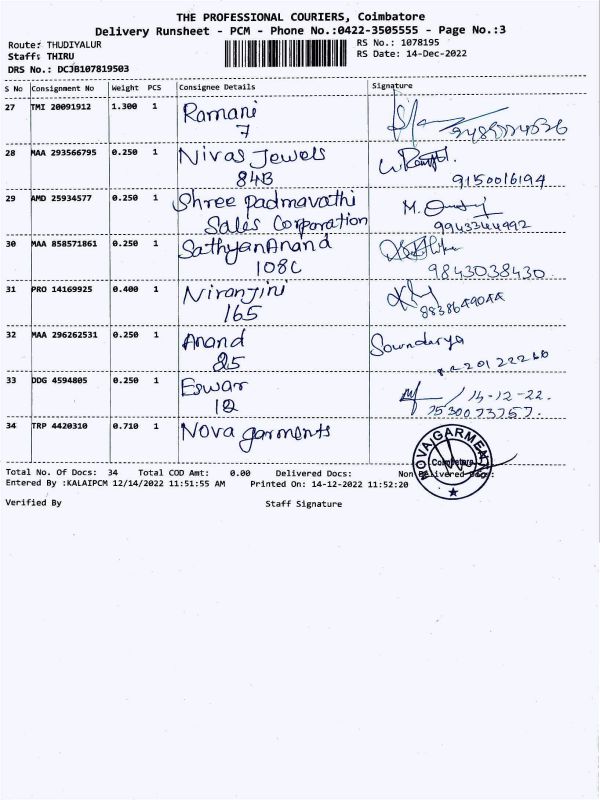 THE PROFESSIONAL COURIERS, Coimbatore
Delivery Runsheet - PCM - Phone No.:0422-3505555 - Page No.:3
Route: THUDIYALUR RS No.: 1078195
Staff: THIRU RS Date: 14-Dec-2022
DRS No.: DCJB107819503
S No Consignment No Weight PCS Consignee Details Signature
27 TMI 20091912 1.300 1 Ramani
7
28 MAA 293566795 0.250 1 Nivas Jewels
84B 9150016194
29 AMD 25934577 0.250 1 Shree Padmavathi
Sales Corporation 9943344992
30 MAA 858571861 0.250 1 SathyanAnand
108C 9843038430
31 PRO 14169925 0.400 1 Niranjini
165 8838649044
32 MAA 296262531 0.250 1 Anand Soundarya
25
33 DDG 4594805 0.250 1 Eswar 14-12-22.
12 7530073757.
34 TRP 4420310 0.710 1 Nova garments
NOVA GARMENTS
Coimbatore
Total No. Of Docs: 34 Total COD Amt: 0.00 Delivered Docs: Non Delivered Docs:
Entered By :KALAIPCM 12/14/2022 11:51:55 AM Printed On: 14-12-2022 11:52:20
Verified By Staff Signature